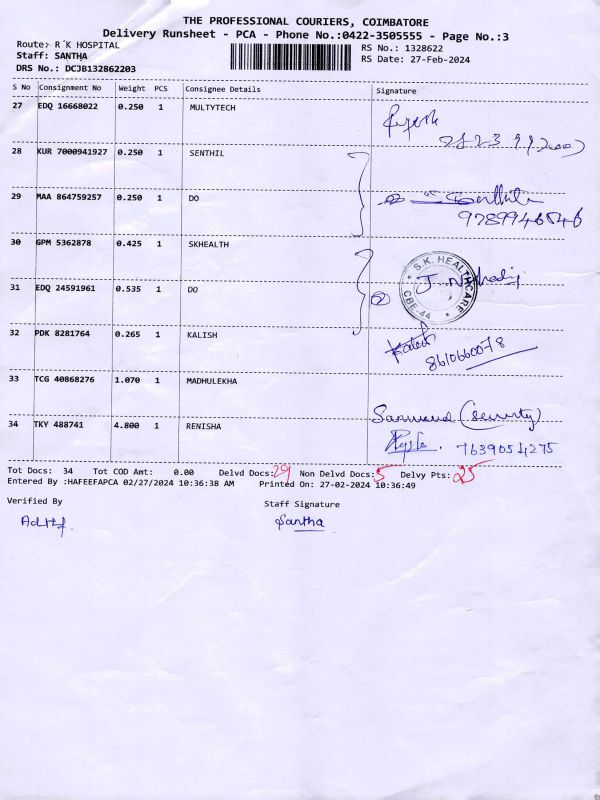 THE PROFESSIONAL COURIERS, COIMBATORE
Delivery Runsheet - PCA - Phone No.:0422-3505555 - Page No.:3
Route:- R´K HOSPITAL
Staff: SANTHA
DRS No.: DCJB132862203
RS No.: 1328622
RS Date: 27-Feb-2024
S No Consignment No Weight PCS Consignee Details Signature
27 EDQ 16668022 0.250 1 MULTYTECH
28 KUR 7000941927 0.250 1 SENTHIL
29 MAA 864759257 0.250 1 DO
9789946546
30 GPM 5362878 0.425 1 SKHEALTH
S.K. HEALTHCARE
CBE-44
31 EDQ 24591961 0.535 1 DO
32 PDK 8281764 0.265 1 KALISH
8610660078
33 TCG 40868276 1.070 1 MADHULEKHA
(security)
34 TKY 488741 4.800 1 RENISHA
7639054275
Tot Docs: 34 Tot COD Amt: 0.00 Delvd Docs: 29 Non Delvd Docs: 5 Delvy Pts: 25
Entered By :HAFEEFAPCA 02/27/2024 10:36:38 AM Printed On: 27-02-2024 10:36:49
Verified By Staff Signature
Santha